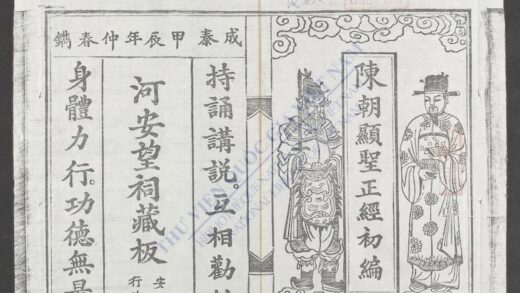 陳朝顯聖正經初編
成泰甲辰年仲春鐫
持誦講說。互相勸
河安望祠藏板
安
行
身體力行。功德無
THƯ VIỆN QUỐC GIA VIỆT NAM